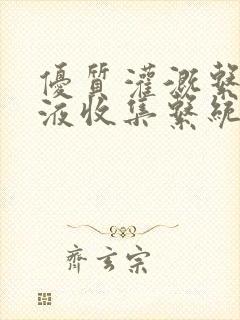 優質灌溉繫
液收集繫統
齊玄宗